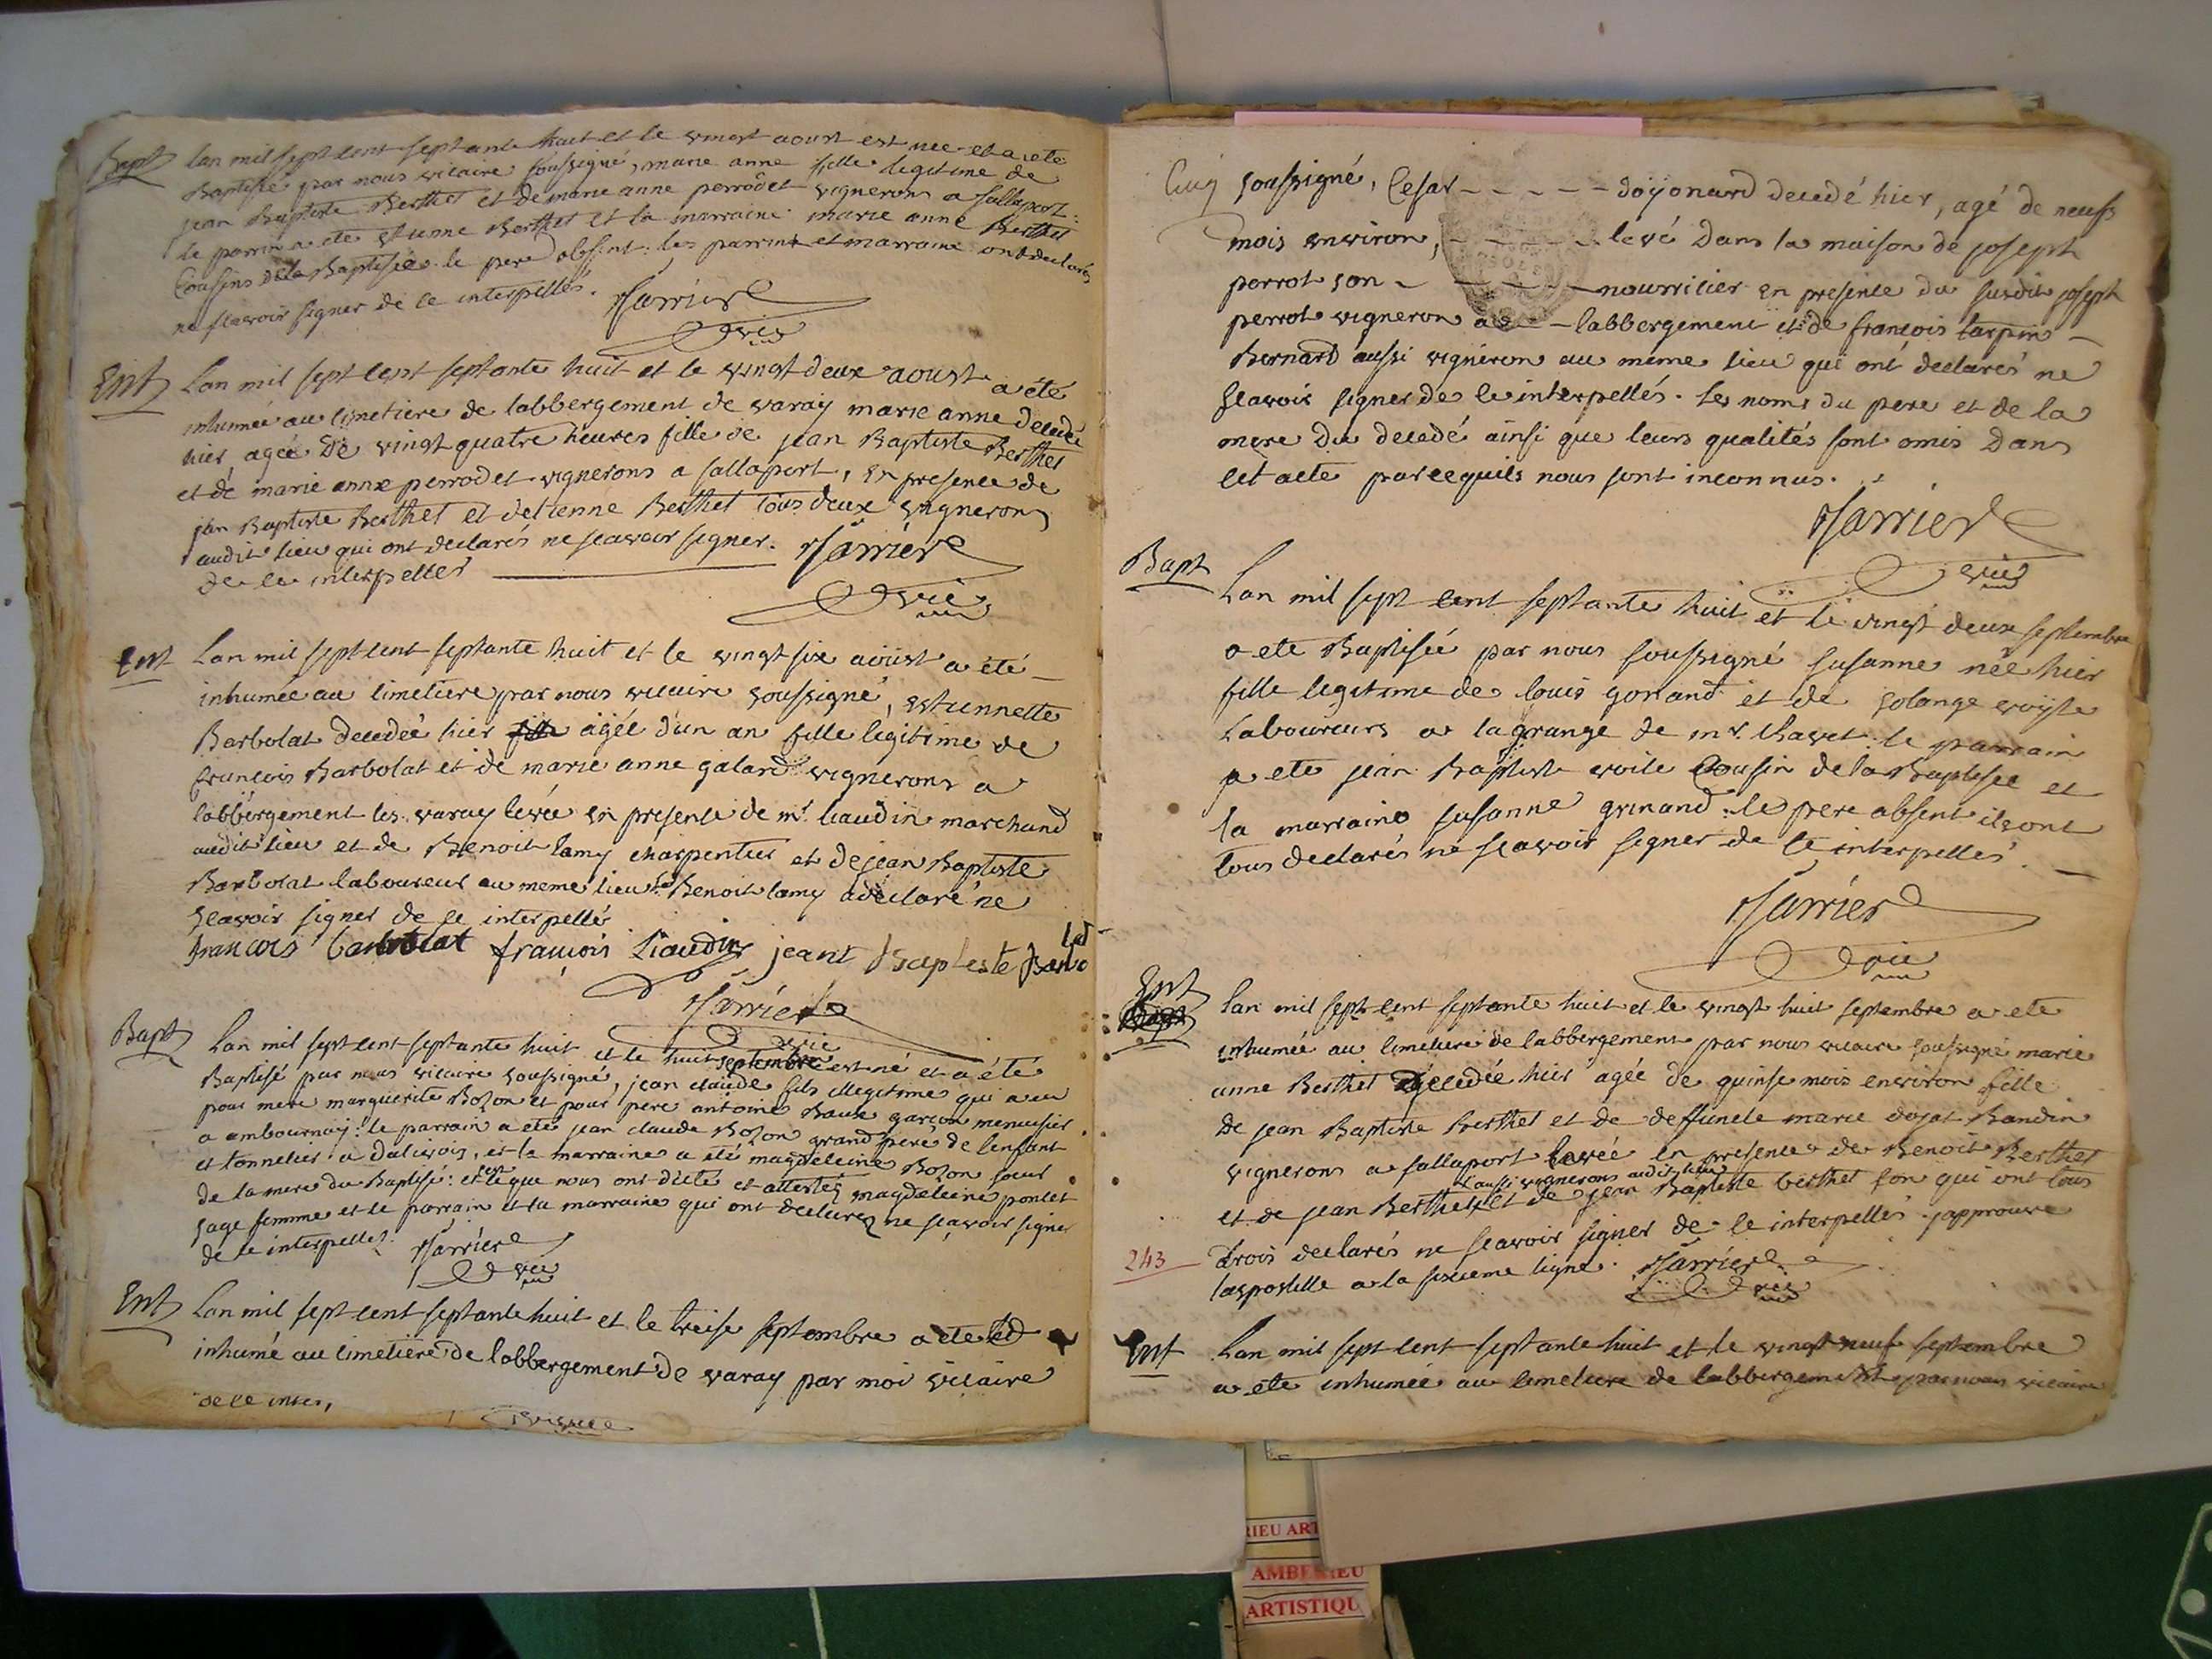 Bapt
lan mil sept cent septante huit et le vingt aoust est née et a ete
Baptisée par nous vicaire soussigné, marie anne fille legitime de
jean Baptiste Berthet et de marie anne perrodet vignerons a sallaport:
le parrin a ete etienne Berthet et la marraine marie anne Berthet
Cousins de la Baptisée. le pere absent: les parrint et marraine ont declarés
ne scavoir signer de ce interpellés.
vic
Ent
Lan mil sept cent septante huit et le vingt deux aoust a été
inhumée au cimetiere de labbergement de varay marie anne decedée
hier, agée De vingt quatre heures fille de jean Baptiste Berthet
et de marie anne perrodet vignerons a sallaport, en presence de
jan Baptiste Berthet et detienne Berthet tous deux vignerons
audit lieu qui ont declarés ne scavoir signer.
de ce interpellés
vic
Ent
Lan mil sept cent septante huit et le vingt six aoust a été
inhumée au cimetiere par nous vicaire soussigné, estiennette
Barbolat decedée hier agée d'un an fille legitime de
francois Barbolat et de marie anne galand vignerons a
labbergement les varay levée en presence de mr. liaudin marchand
audit lieu et de Benoit lamy charpentier et de jean Baptiste
Barbolat laboureur au meme lieu Benoit lamy a declaré ne
scavoir signer de ce interpellés
francois barbolat françois Liaudin jeant Bapteste Barbo
lat
vic
Bapt
Lan mil sept cent septante huit et le huit septembre est né et a été
Baptisé par nous vicaire soussigné, jean claude fils illegitime qui a eu
pour mere marguerite Bozon et pour pere antoine Baux garçon menuisier
a ambournay: le parrain a ete jean claude Bozon grand pere de lenfant
et tonnelier a Dalivoix, et la marraine a été magdeleine Bozon soeur
de la mere du Baptisé: et ce que nous ont dicté et attestés magdeleine poncet
sage femme et le parrain et la marraine qui ont declarez ne scavoir signer
de ce interpellés.
vic
Ent
Lan mil sept cent septante huit et le treise septembre a ete
inhumé au cimetiere de labbergement de varay par moi vicaire
de ce inter,
soussigné, Cesar - - - - - doyonard decedé hier, agé de neufs
mois environ, - - - - - levé Dans la maison de joseph
perrot son - - - - - nourricier en presence du susdit joseph
perrot vigneron a - - labbergement et de françois tarpin
Bernard aussi vigneron au meme lieu qui ont declarés ne
scavoir signer de ce interpellés. Les noms du pere et de la
mere du decedé ainsi que leurs qualités sont omis Dans
cet acte parcequils nous sont inconnus.
vic
Bapt
Lan mil sept cent septante huit et le vingt deux septembre
a ete Baptisée par nous soussigné susanne née hier
fille legitime de louis gonand et de solange
Laboureurs a la grange de mr. Chavet: le parrain
a ete jean Baptiste voite Cousin de la Baptisée et
la marraine susanne grinand: le pere absent ils ont
tous declarés ne scavoir signer de ce interpellés.
vic
Ent
lan mil sept cent septante huit et le vingt huit septembre a ete
inhumée au cimetiere de labbergement par nous vicaire soussigné marie
anne Berthet decedée hier agée de quinse mois environ fille
De jean Baptiste Berthet et de deffuncte marie dojat Bandin
vignerons a sallaport levée en presence de Benoit Berthet
aussi vignerons audit lieu
et de jean Berthet et de jean Baptiste berthet son qui ont tous
243
trois declarés ne scavoir signer de ce interpellés. japprouve
lapostille a la sixieme ligne.
vic
Ent
Lan mil sept cent septante huit et le vingt neuf septembre
a ete inhumée au cimetiere de labbergement par nous vicaire
RIEU ART
AMBERIEU
ARTISTIQU